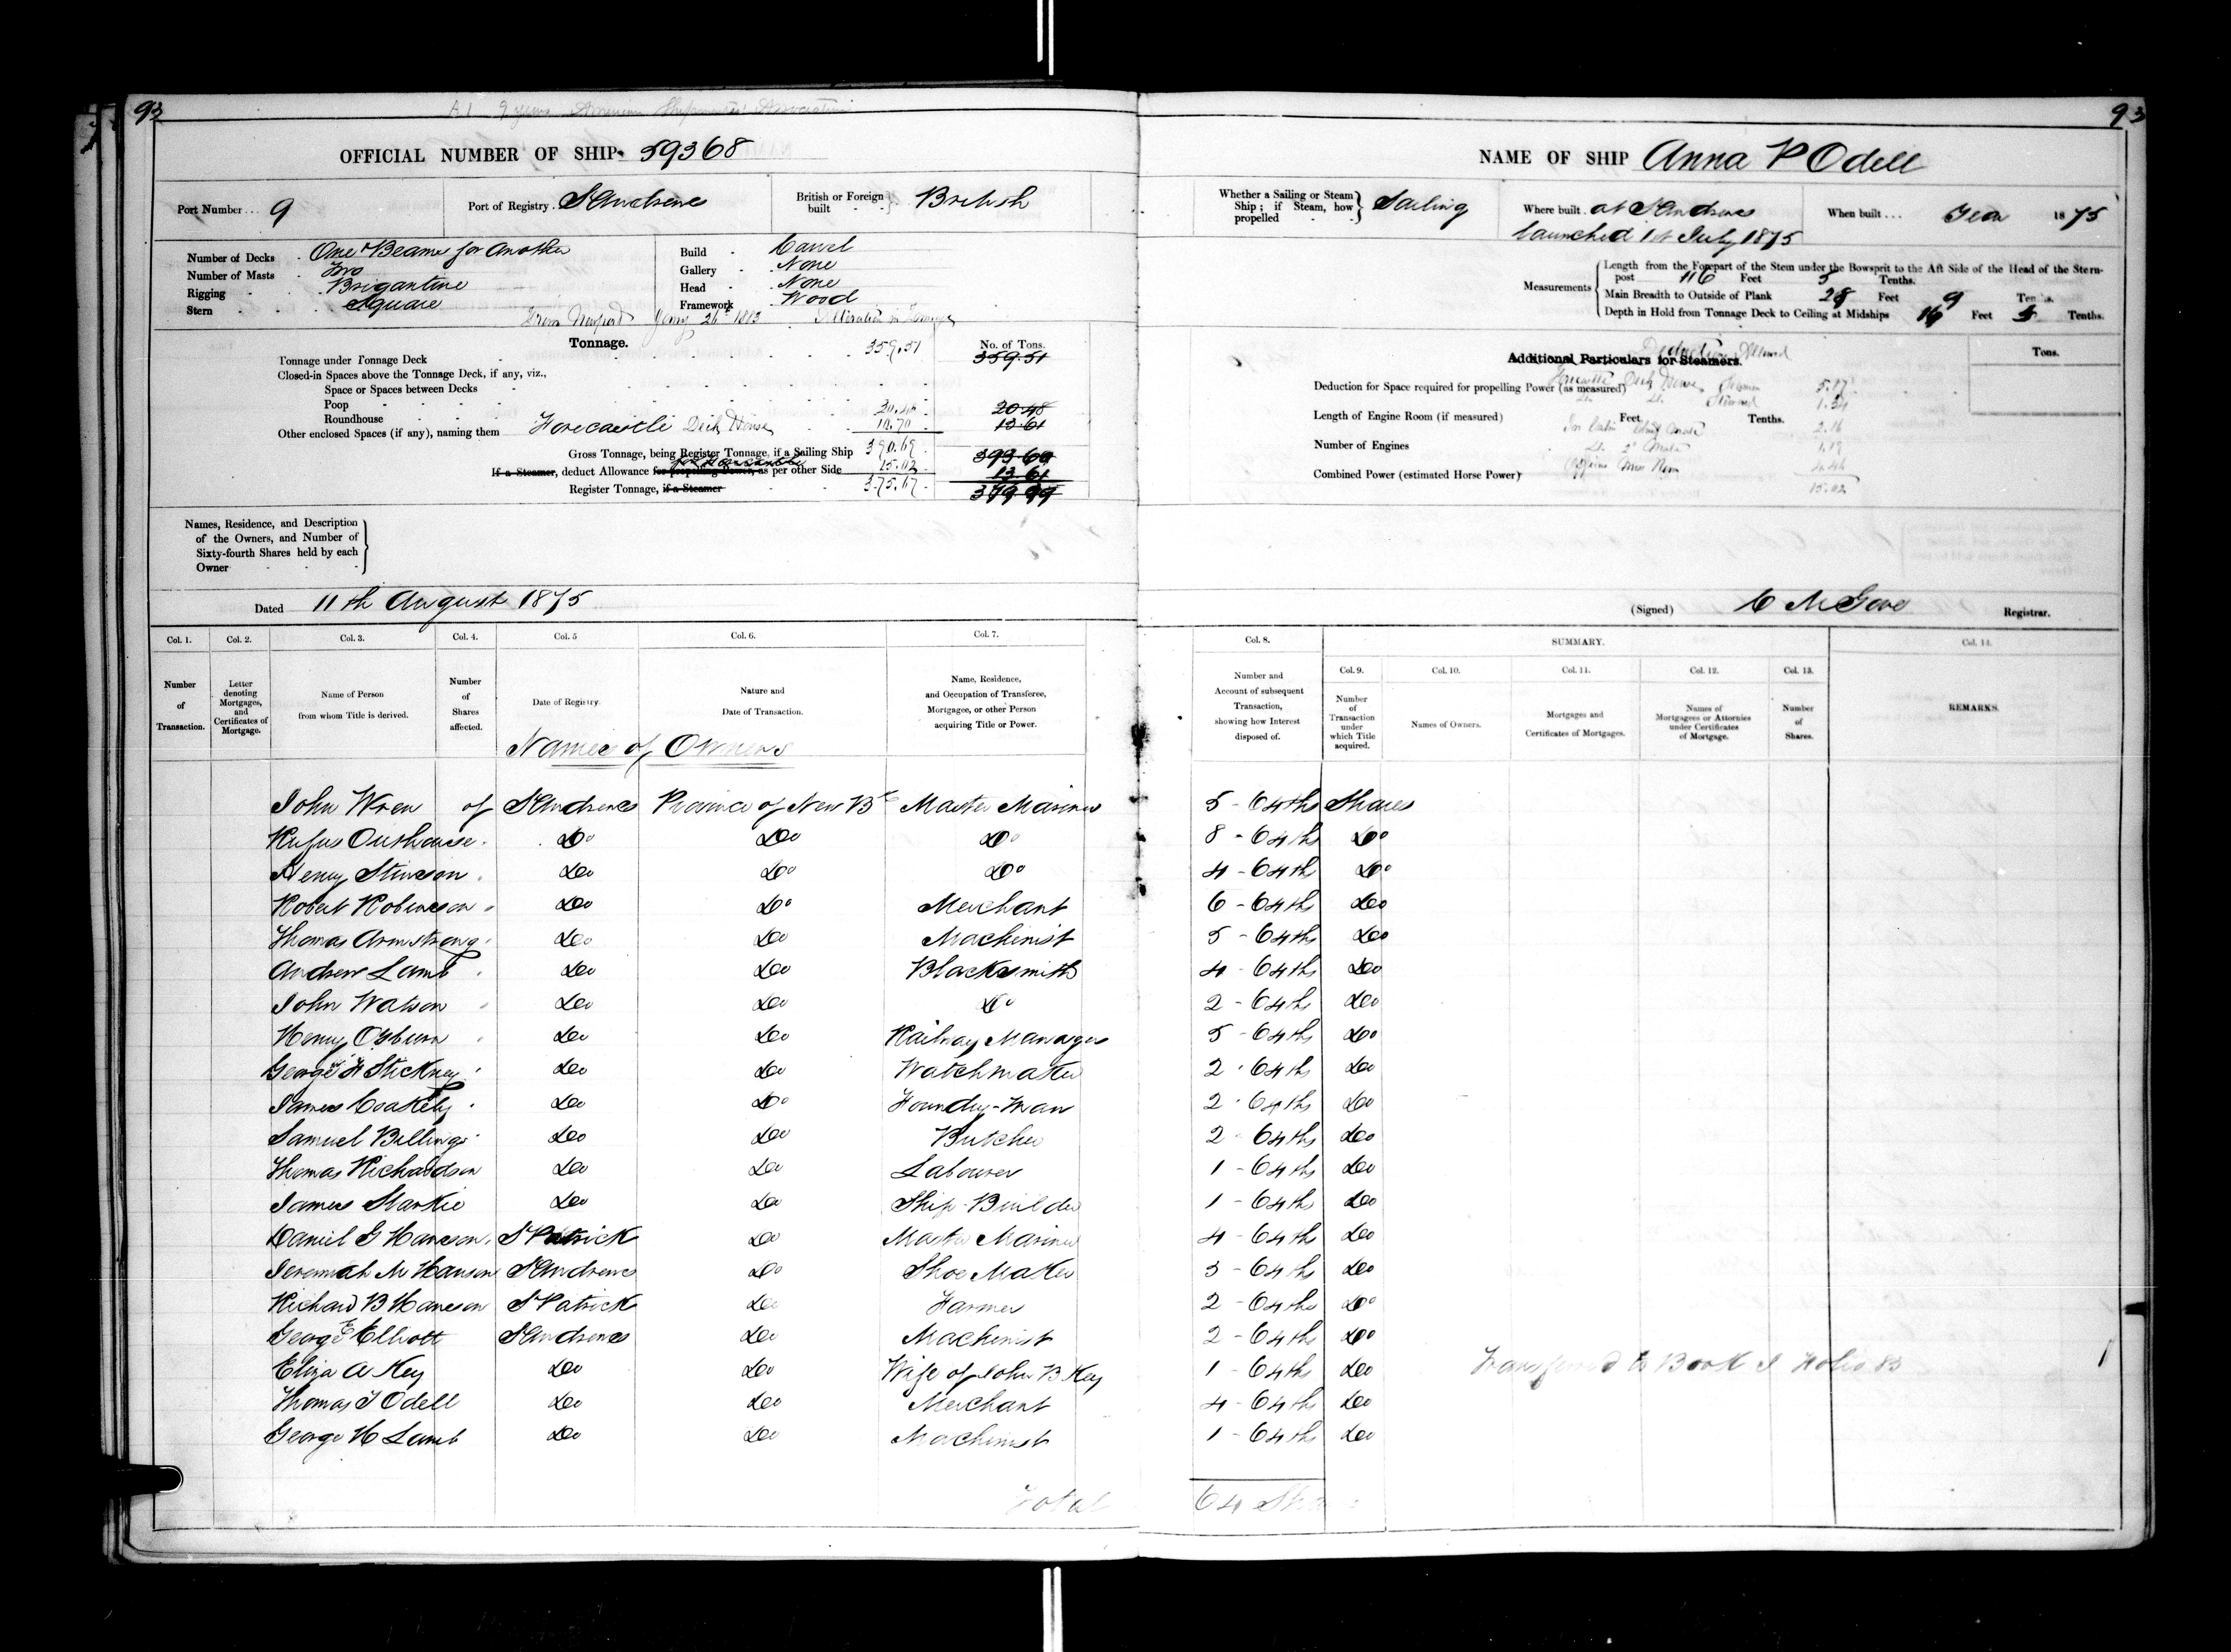 93
A 1 9 years American Shipmasters' Association
93
OFFICIAL NUMBER OF SHIP 59368
NAME OF SHIP Anna P Odell
Port Number... 9
Port of Registry. St Andrews
British or Foreign built } British
Whether a Sailing or Steam Ship; if Steam, how propelled } Sailing
Where built. at St Andrews
launched 1st July 1875
When built... Year 1875
Number of Decks One & Beams for another
Number of Masts Two
Rigging Brigantine
Stern Square
Build Carvel
Gallery None
Head None
Framework Wood
Measurements { Length from the Forepart of the Stem under the Bowsprit to the Aft Side of the Head of the Stern-
post 116 Feet 5 Tenths.
Main Breadth to Outside of Plank 28 Feet 9 Tenths.
Depth in Hold from Tonnage Deck to Ceiling at Midships Feet Tenths.
From Newport Jany 26th 1883 Alteration in Tonnage
Tonnage.
No. of Tons.
Tonnage under Tonnage Deck 359.51 359.51
Closed-in Spaces above the Tonnage Deck, if any, viz.,
Space or Spaces between Decks
Poop 20.48 20.48
Roundhouse
Other enclosed Spaces (if any), naming them Forecastle Deck House 10.70 13.61
Gross Tonnage, being Register Tonnage, if a Sailing Ship 390.69 393.60
If a Steamer, deduct Allowance for propelling Power, as per other Side 15.02 13.61
Register Tonnage, if a Steamer 375.67 379.99
Additional Particulars for Steamers.
Deductions Allowed
Tons.
Deduction for Space required for propelling Power (as measured)
Forecastle Deck House Seamen 5.17
Do Do Steward 1.34
Length of Engine Room (if measured) Feet Tenths.
In Cabin Chief Mate 2.16
Number of Engines
Do 2d Mate
Combined Power (estimated Horse Power)
Officers Mess Room
15.02
Names, Residence, and Description
of the Owners, and Number of
Sixty-fourth Shares held by each
Owner
Dated 11th August 1875
(Signed) C M Gove Registrar.
Col. 1. Col. 2. Col. 3. Col. 4. Col. 5 Col. 6. Col. 7. Col. 8. SUMMARY. Col. 14.
Col. 9. Col. 10. Col. 11. Col. 12. Col. 13.
Number of Transaction.
Letter denoting Mortgages, and Certificates of Mortgage.
Name of Person from whom Title is derived.
Number of Shares affected.
Date of Registry.
Nature and Date of Transaction.
Name, Residence, and Occupation of Transferee, Mortgagee, or other Person acquiring Title or Power.
Number and Account of subsequent Transaction, showing how Interest disposed of.
Number of Transaction under which Title acquired.
Names of Owners.
Mortgages and Certificates of Mortgages.
Names of Mortgagees or Attornies under Certificates of Mortgage.
Number of Shares.
REMARKS.
Names of Owners
John Wren of St Andrews Province of New Bk Master Mariner 5 - 64ths Shares
Rufus Outhouse Do Do Do 8 - 64ths Do
Henry Stinson Do Do Do 4 - 64ths Do
Robert Robinson Do Do Merchant 6 - 64ths Do
Thomas Armstrong Do Do Machinist 5 - 64ths Do
Andrew Lamb Do Do Blacksmith 4 - 64ths Do
John Watson Do Do Do 2 - 64ths Do
Henry Osburn Do Do Railway Manager 5 - 64ths Do
George F Stickney Do Do Watchmaker 2 - 64ths Do
James Coakely Do Do Foundry-man 2 - 64ths Do
Samuel Billings Do Do Butcher 2 - 64ths Do
Thomas Richardson Do Do Labourer 1 - 64ths Do
James Starkie Do Do Ship-Builder 1 - 64ths Do
Daniel G Hanson St Patrick Do Master Mariner 4 - 64ths Do
Jeremiah M Hanson St Andrews Do Shoe Maker 3 - 64ths Do
Richard B Hanson St Patrick Do Farmer 2 - 64ths Do
George E Elliott St Andrews Do Machinist 2 - 64ths Do
Eliza A Key Do Do Wife of John B Key 1 - 64ths Do
Transferred to Book I Folio 83
Thomas T Odell Do Do Merchant 4 - 64ths Do
George H Lamb Do Do Machinist 1 - 64ths Do
Total 64 Sha